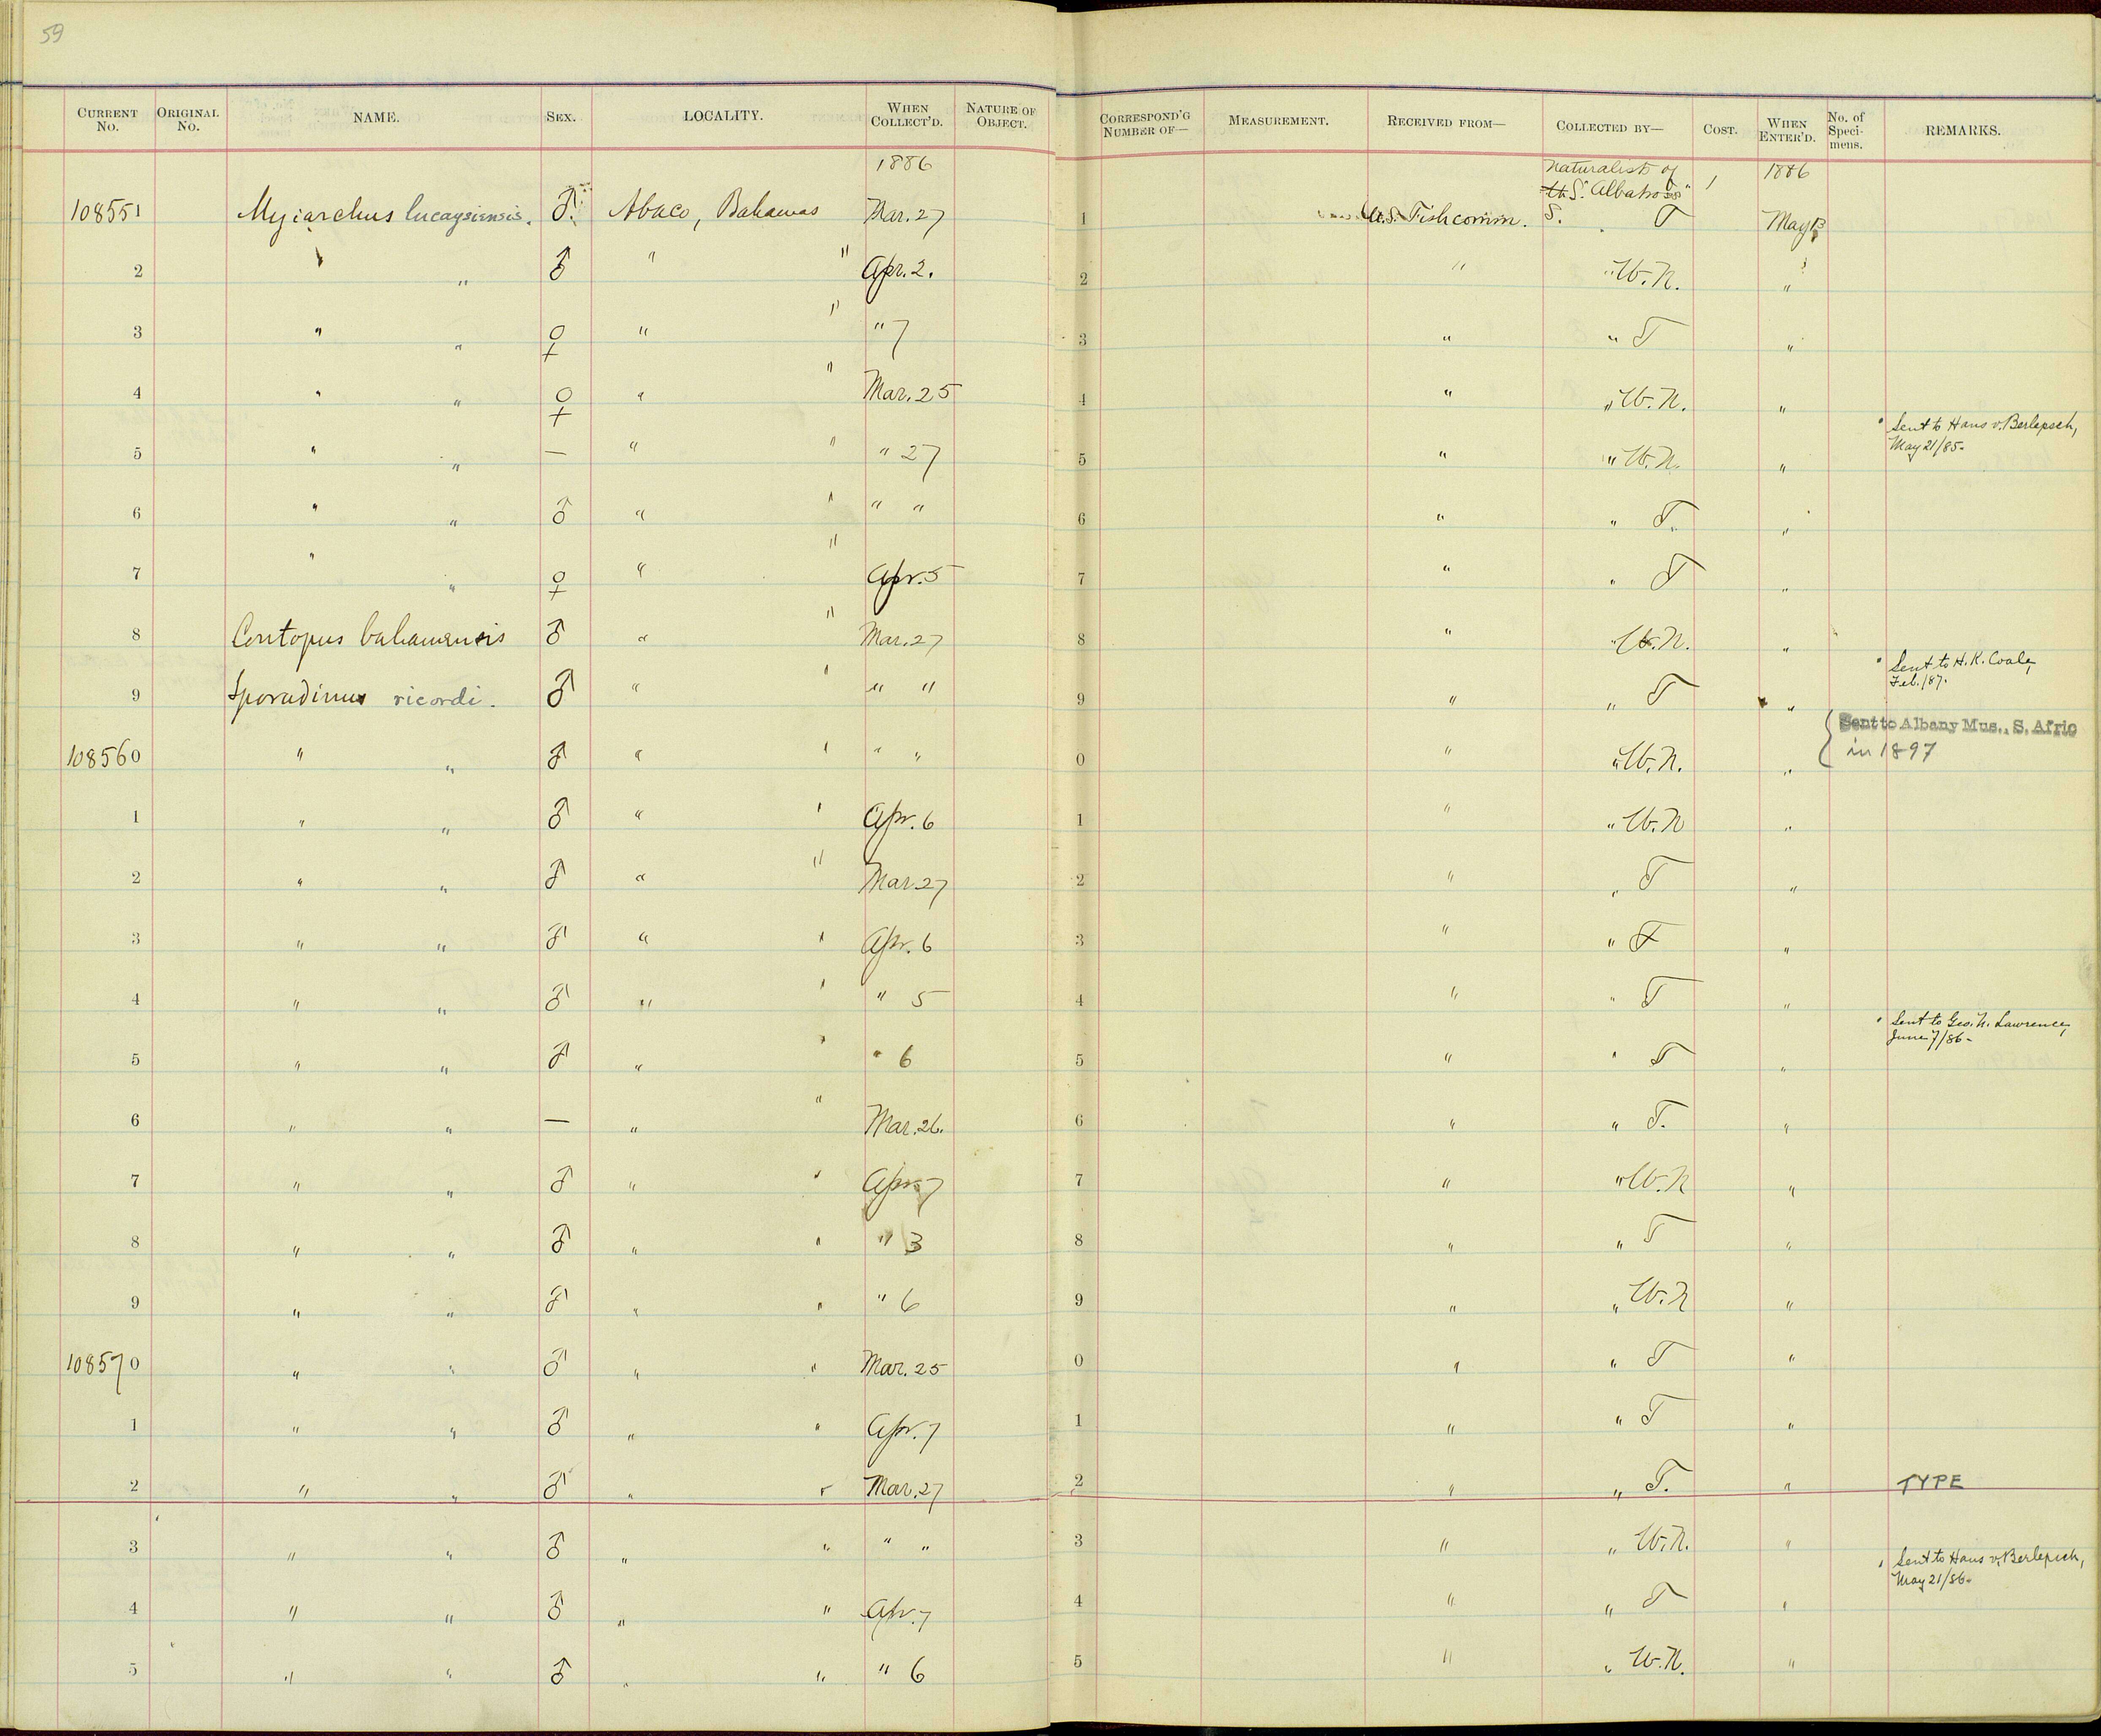 59
CURRENT No. ORIGINAL No. NAME. SEX. LOCALITY. WHEN COLLECT'D. NATURE OF OBJECT. CORRESPOND'G NUMBER OF— MEASUREMENT. RECEIVED FROM— COLLECTED BY— COST. WHEN ENTER'D. No. of Specimens. REMARKS.
1886 Naturalists of 1886
the S. "Albatross"
108551 Myiarchus lucaysiensis. ♂ Abaco, Bahamas Mar. 27 1 U.S. Fish comm. S. T May 13
2 " " ♂ " " Apr. 2. 2 " " W. N. "
3 " " ♀ " " " 7 3 " " T "
4 " " ♀ " " Mar. 25 4 " " W. N. "
Sent to Hans v. Berlepsch,
5 " " — " " " 27 5 " " W. N. " May 21/85.
6 " " ♂ " " " " 6 " " T. "
7 " " ♀ " " Apr. 5 7 " " T "
8 Contopus bahamensis ♂ " " Mar. 27 8 " " W. N. "
Sent to H. K. Coale,
9 Sporadinus ricordi. ♂ " " " " 9 " " T " Feb. /87.
Sent to Albany Mus., S. Afric
108560 " " ♂ " " " " 0 " " W. N. " in 1897
1 " " ♂ " " Apr. 6 1 " " W. N "
2 " " ♂ " " Mar. 27 2 " " T "
3 " " ♂ " " Apr. 6 3 " " T "
4 " " ♂ " " " 5 4 " " T "
Sent to Geo. N. Lawrence,
5 " " ♂ " " " 6 5 " " T " June 7/86.
6 " " — " " Mar. 26. 6 " " T. "
7 " " ♂ " " Apr. 7 7 " " W. N "
8 " " ♂ " " " 3 8 " " T "
9 " " ♂ " " " 6 9 " " W. N "
108570 " " ♂ " " Mar. 25 0 " " T "
1 " " ♂ " " Apr. 7 1 " " T "
2 " " ♂ " " Mar. 27 2 " " T. " TYPE
3 " " ♂ " " " " 3 " " W. N. "
Sent to Hans v. Berlepsch,
May 21/86.
4 " " ♂ " " Apr. 7 4 " " T "
5 " " ♂ " " " 6 5 " " W. N. "